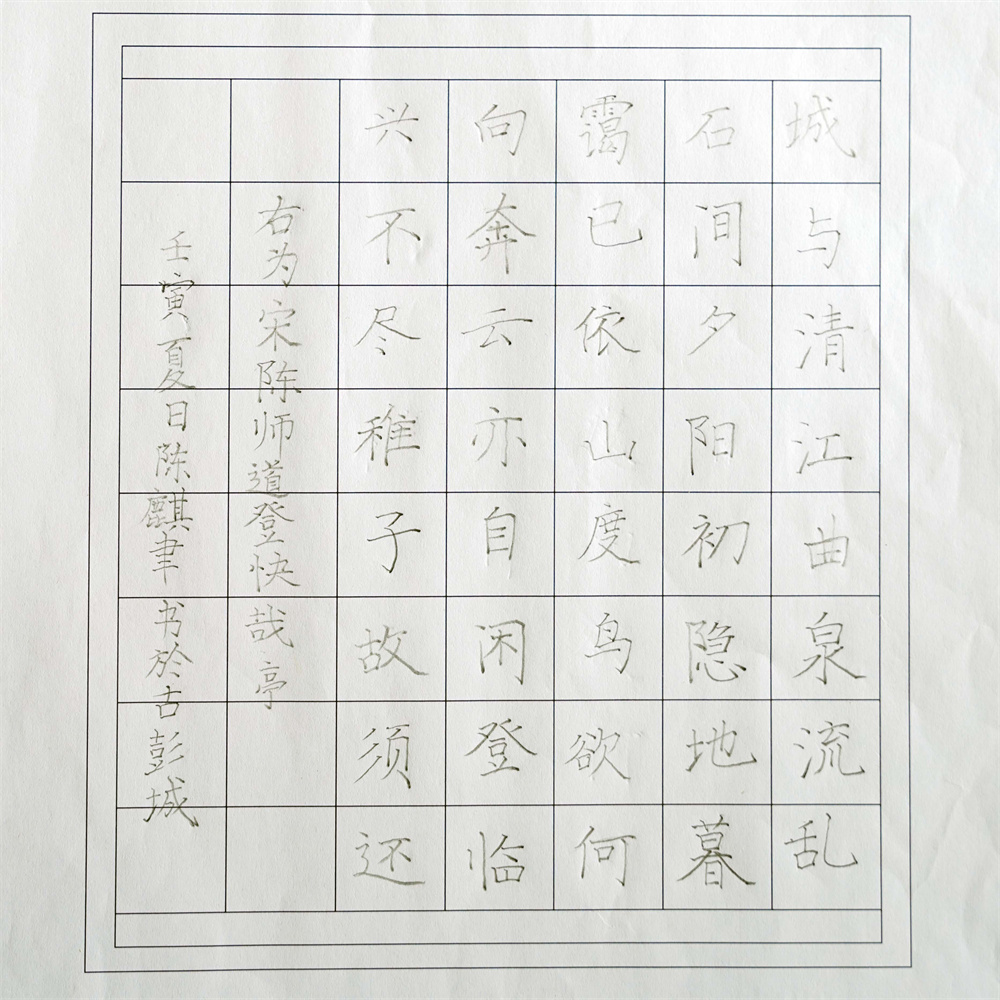 城与清江曲泉流乱
石间夕阳初隐地暮
霭已依山度鸟欲何
向奔云亦自闲登临
兴不尽稚子故须还
右为宋陈师道登快哉亭
壬寅夏日陈麒聿书於古彭城